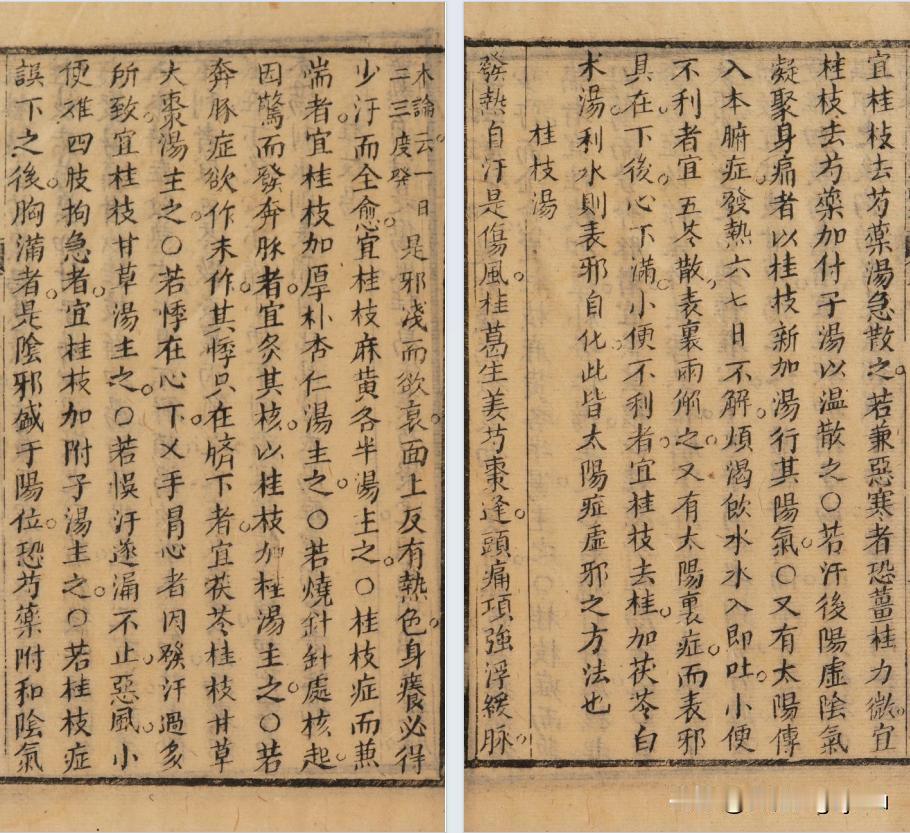 本論云一日
二三度發
是邪淺而欲衰面上反有熱色身癢必得
少汗而全愈宜桂枝麻黃各半湯主之○桂枝症而兼
喘者宜桂枝加厚朴杏仁湯主之○若燒針針處核起
因驚而發奔豚者宜灸其核以桂枝加桂湯主之○若
奔豚症欲作未作其悸只在臍下者宜茯苓桂枝甘草
大棗湯主之○若悸在心下叉手冒心者因發汗過多
所致宜桂枝甘草湯主之○若悞汗遂漏不止惡風小
便难四肢拘急者宜桂枝加附子湯主之○若桂枝症
誤下之後胸滿者是陰邪盛于陽位恐芍藥附和陰氣
宜桂枝去芍藥湯急散之若兼惡寒者恐薑桂力微宜
桂枝去芍藥加付子湯以温散之○若汗後陽虛陰氣
凝聚身痛者以桂枝新加湯行其陽氣○又有太陽傳
入本腑症發熱六七日不解煩渴飲水水入即吐小便
不利者宜五苓散表裏兩解之又有太陽裏症而表邪
具在下後心下滿小便不利者宜桂枝去桂加茯苓白
术湯利水則表邪自化此皆太陽症虛邪之方法也
桂枝湯
發熱自汗是傷風桂葛生姜芍棗逢頭痛項強浮緩脉